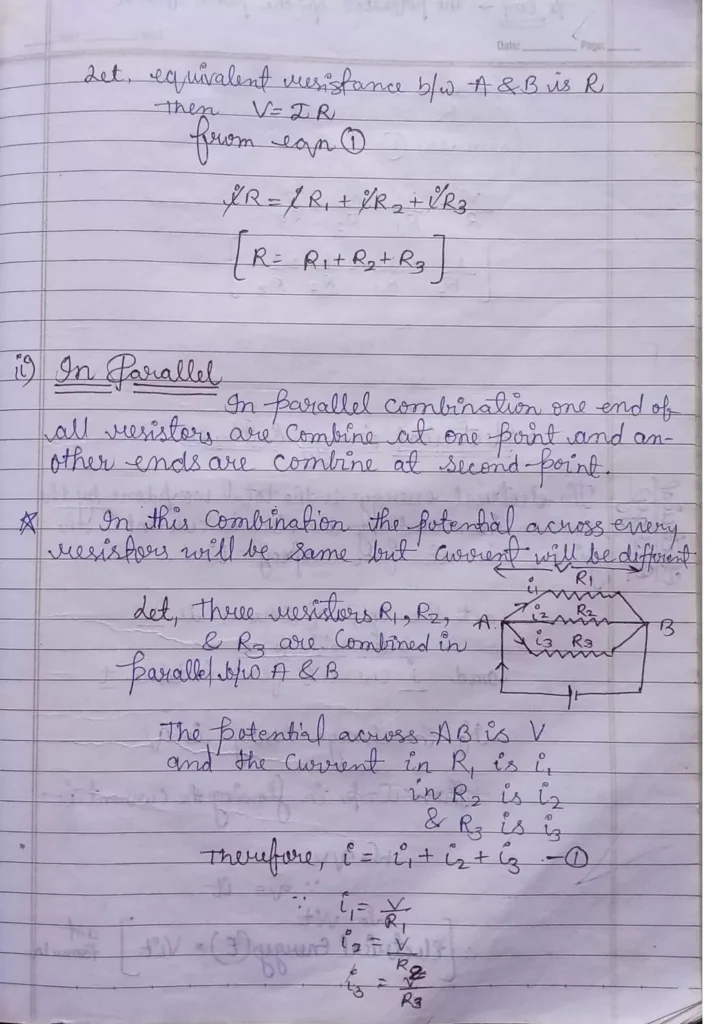 Date: Page:
Let, equivalent resistance b/w A & B is R
Then V = IR
from eqn ①
iR = iR₁ + iR₂ + iR₃
[R = R₁ + R₂ + R₃]
ii) In Parallel
In parallel combination one end of
all resistors are combine at one point and an-
other ends are combine at second point.
☆ In this combination the potential across every
resistors will be same but current will be different
i₁ R₁
Let, Three resistors R₁, R₂, A i₂ R₂ B
& R₃ are combined in i₃ R₃
parallel b/w A & B
The potential across AB is V
and the current in R₁ is i₁
in R₂ is i₂
& R₃ is i₃
Therefore, i = i₁ + i₂ + i₃ —①
∵ i₁ = V/R₁
i₂ = V/R₂
i₃ = V/R₃